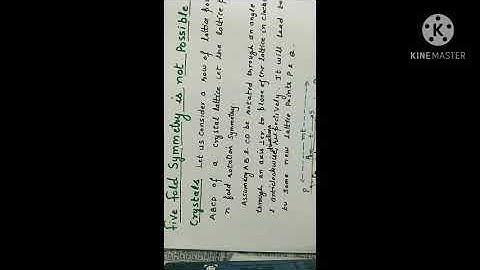 Five fold Symmetry is not Possible
Crystals Let us Consider a row of lattice
ABCD of a Crystal lattice Let the lattice
n fold rotation Symmetry
Assuming AB & CD be rotated through an angle
through an axis to plane of the lattice in
& anticlockwise respectively. It will lead
by some new lattice Points P & Q.
P mt
KINEMASTER